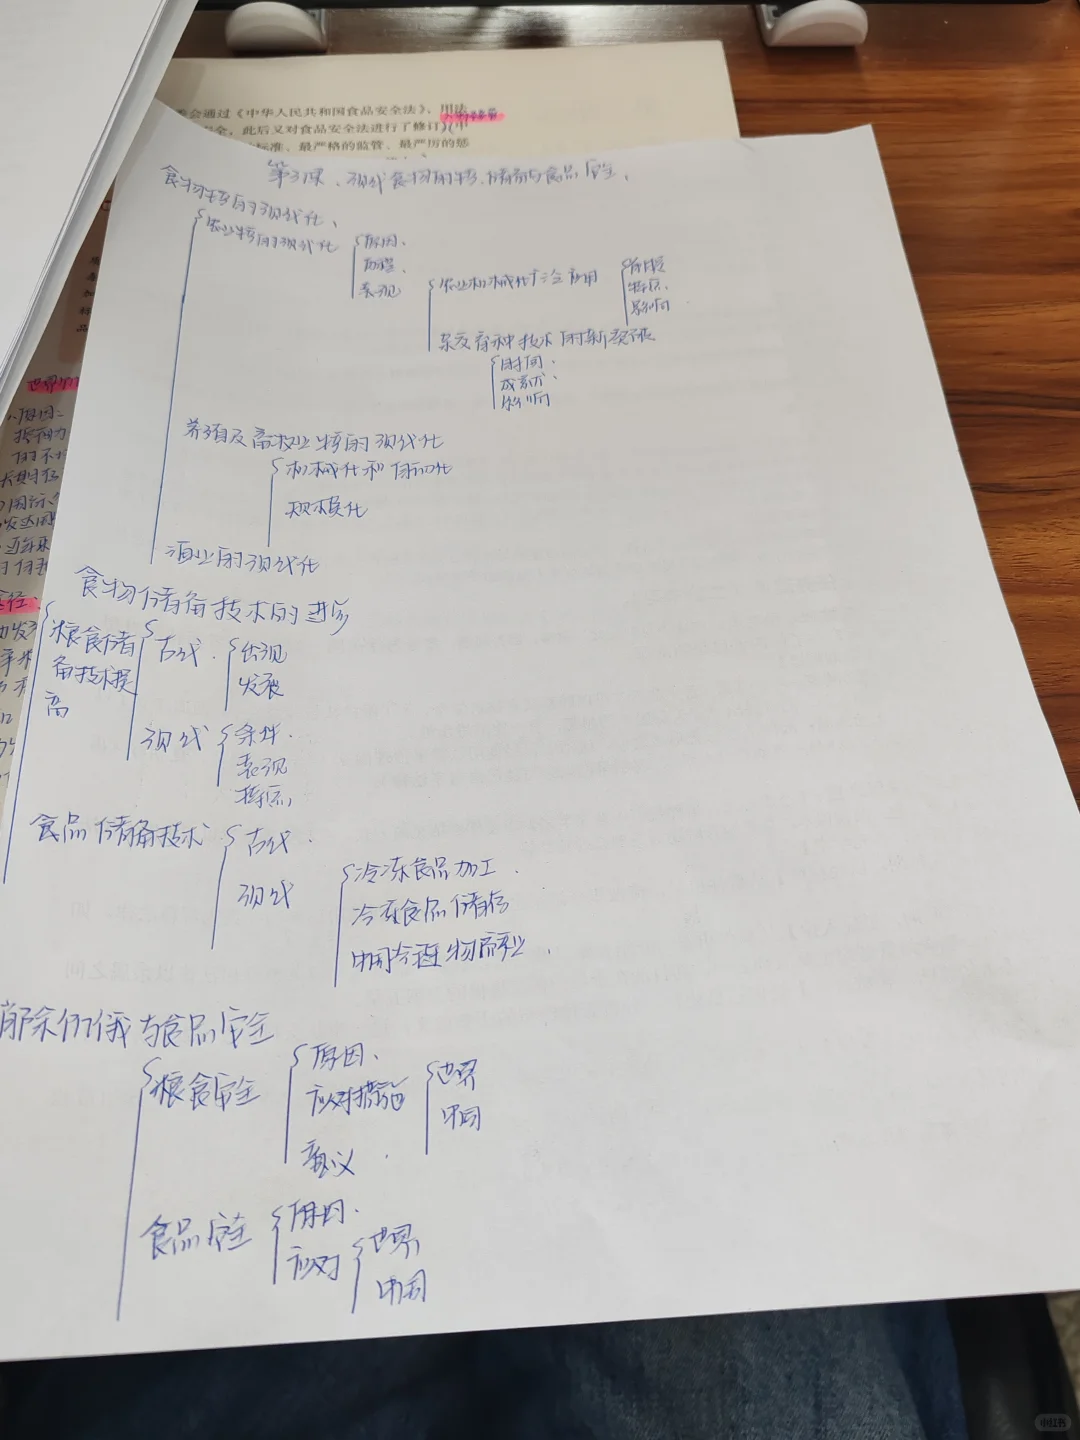 委会通过《中华人民共和国食品安全法》、用法
安全，此后又对食品安全法进行了修订
标准、最严格的监管、最严厉的惩
第3课、现代食物的生产、储备与食品安全、
食物生产的现代化、
农业生产的现代化
原因、
历程、
表现
农业机械化广泛应用
阶段
特点、
影响
杂交育种技术的新突破
时间、
成就、
影响
养殖及畜牧业生产的现代化
机械化和自动化
规模化
渔业的现代化
食物储备技术的进步
粮食储
备技术提
高
古代、
出现
发展
现代
条件、
表现
特点、
食品储备技术
古代、
现代
冷冻食品加工、
冷冻食品储存
中国冷链物流业、
消除饥饿与食品安全
粮食安全
原因、
应对措施
世界
中国
意义
食品安全
原因、
应对
世界
中国
小红书